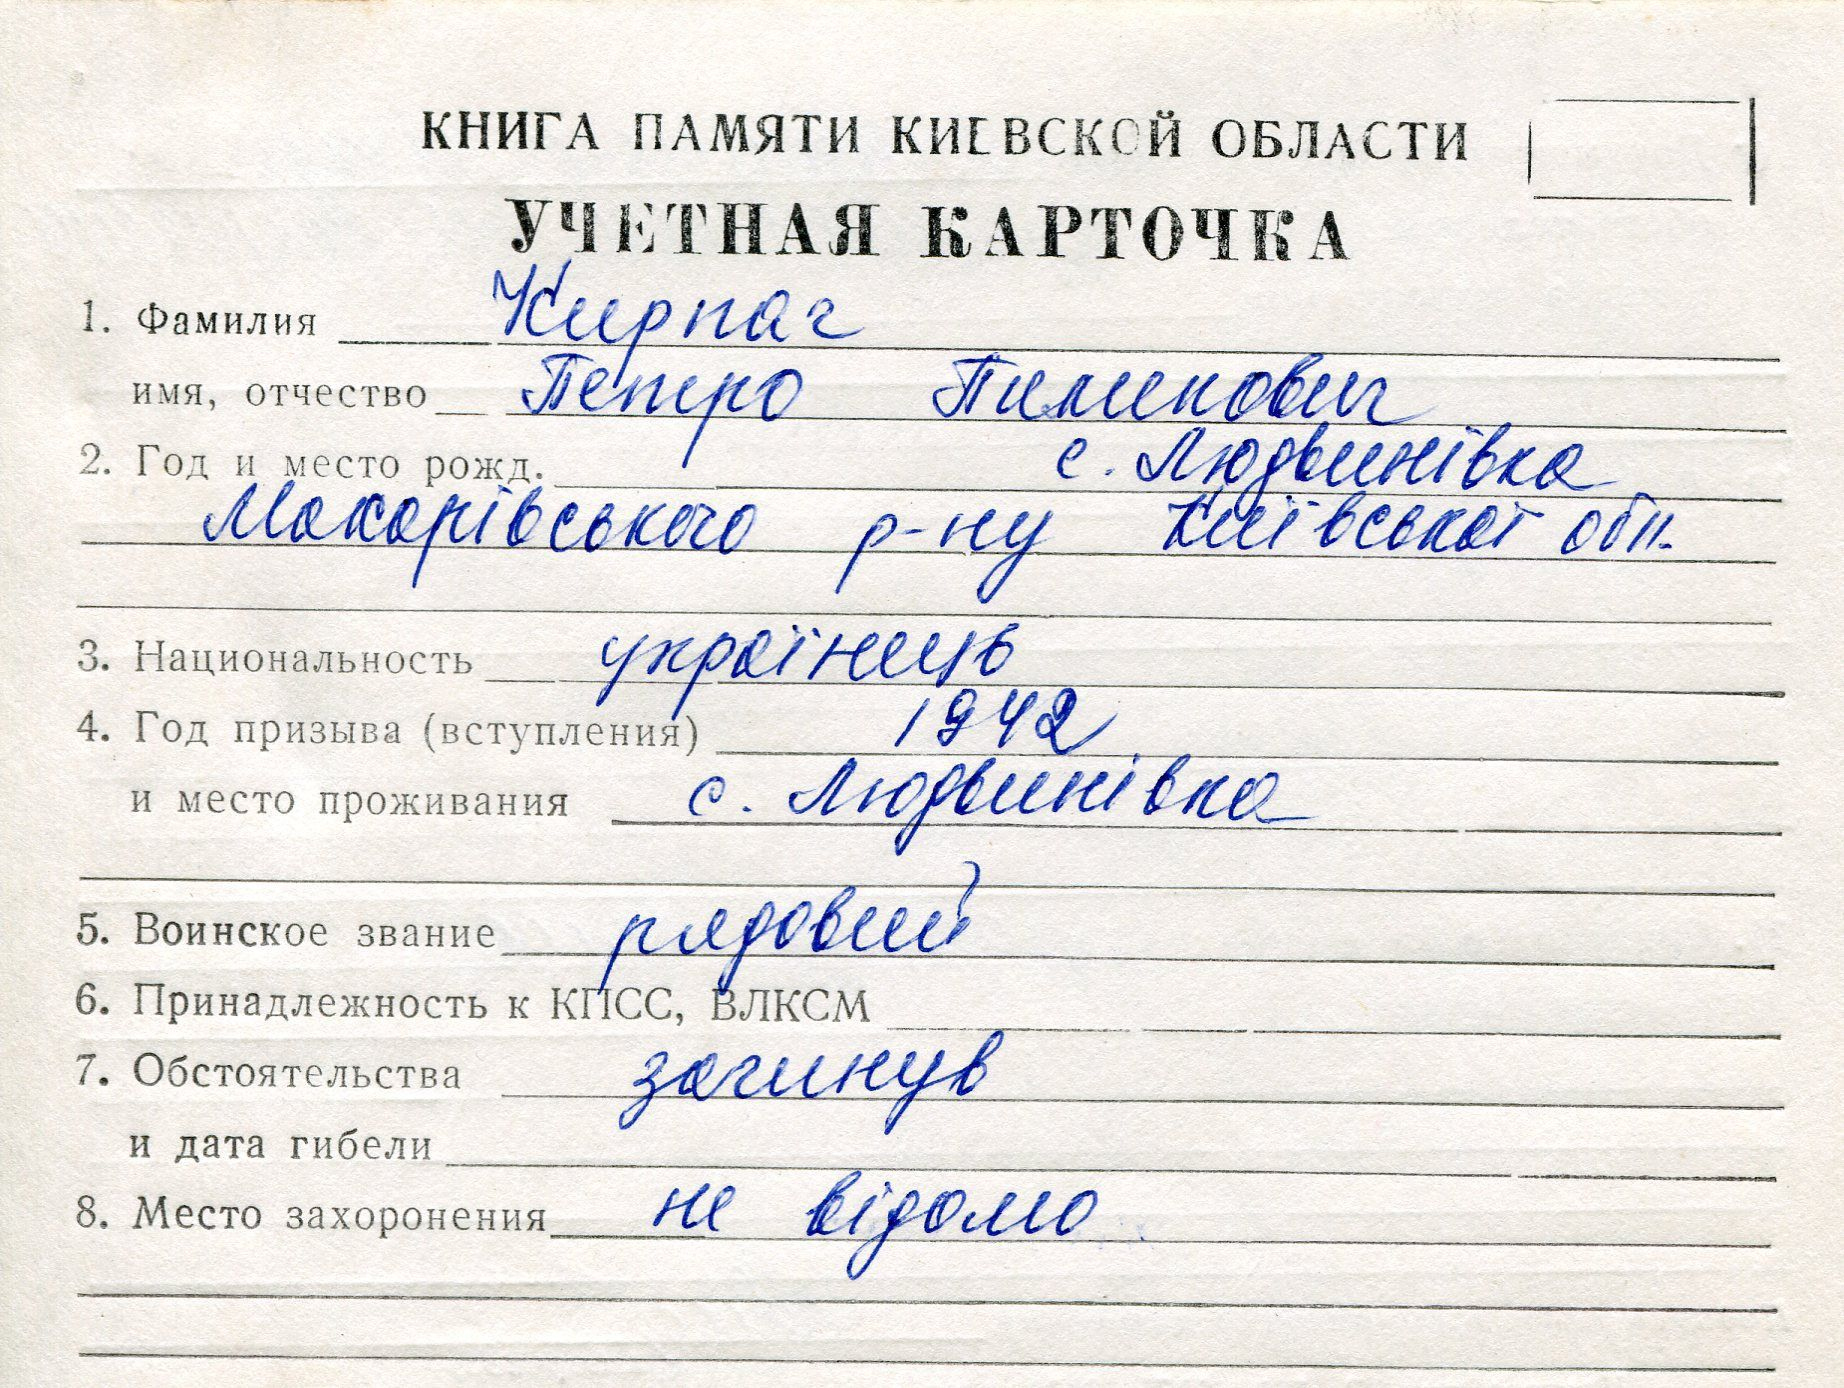 КНИГА ПАМЯТИ КИЕВСКОЙ ОБЛАСТИ
УЧЕТНАЯ КАРТОЧКА
1. Фамилия Кирпач
имя, отчество Петро Пименович
2. Год и место рожд. с. Людвинівка
Макарівського р-ну Київської обл.
3. Национальность українець
4. Год призыва (вступления) 1942
и место проживания с. Людвинівка
5. Воинское звание рядовий
6. Принадлежность к КПСС, ВЛКСМ
7. Обстоятельства загинув
и дата гибели
8. Место захоронения не відомо